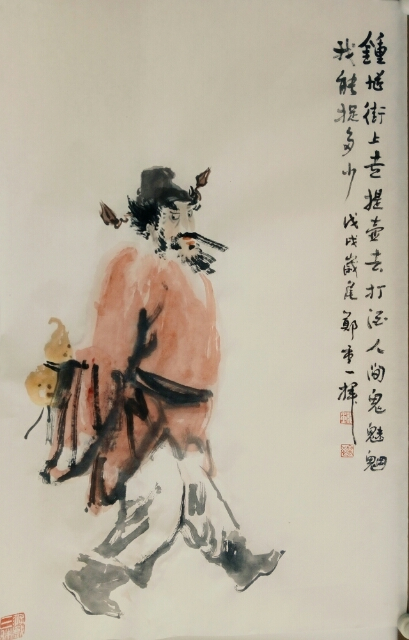 鍾馗街上走提壺去打酒人間鬼魅
我能捉多少 戊戌歲尾鄭一揮